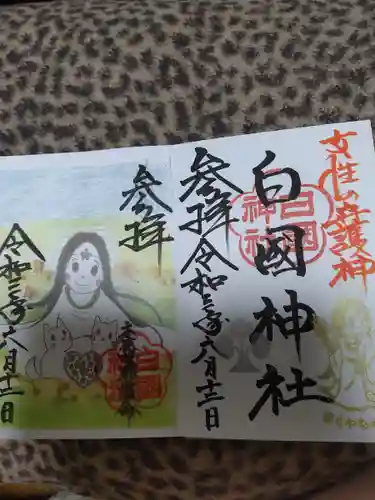 女性の守護神
白國神社
白國神社
参拝
令和三年六月十二日
参拝
令和三年六月十二日